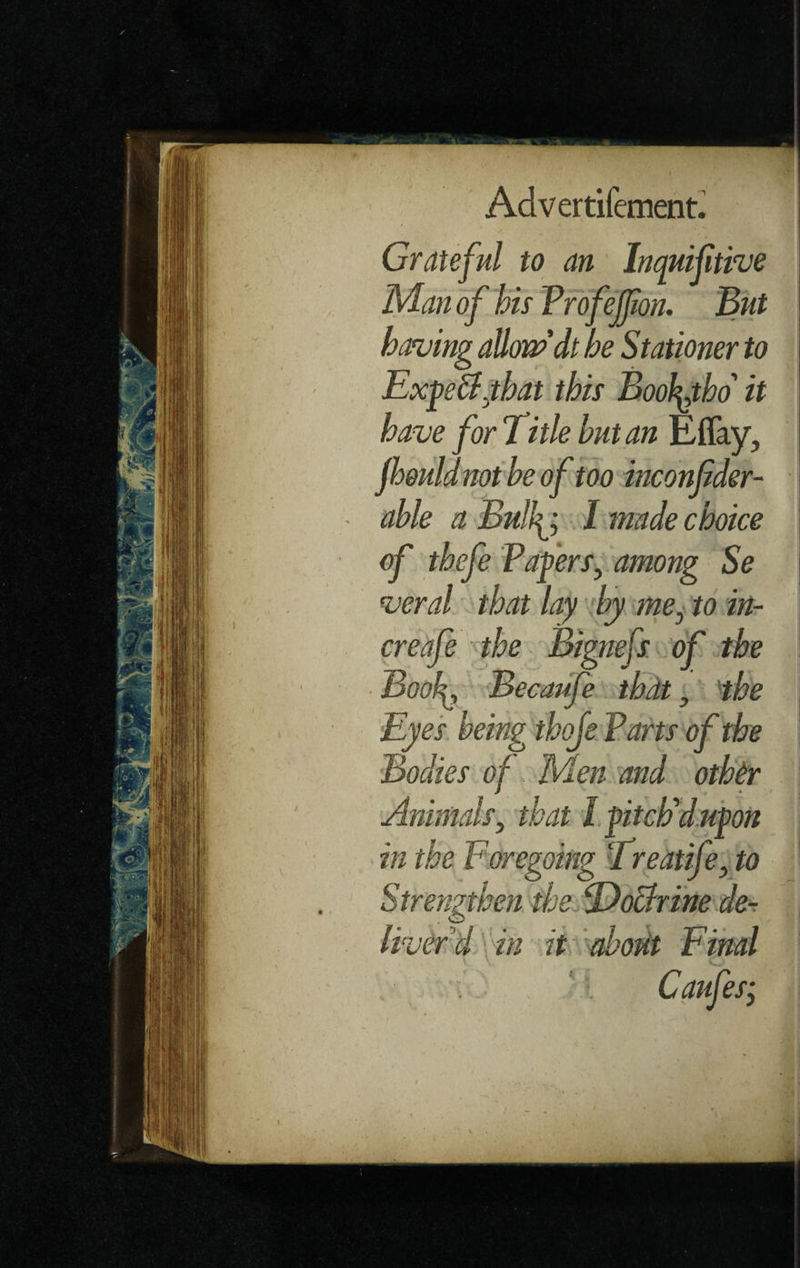 Advertiſement.
Grateful to an Inquiſitive
Man of his Profeſſion. But
having allow'dt he Stationer to
Expect,that this Book,tho' it
have for Title but an Eſſay,
ſhould not be of too inconſider-
able a Bulk; I made choice
of theſe Papers, among Se
veral that lay by me, to in-
creaſe the Bigneſs of the
Book, Becauſe that, the
Eyes being thoſe Parts of the
Bodies of Men and other
Animals, that I pitch'd upon
in the Foregoing Treatiſe, to
Strengthen the Doctrine de-
liver'd in it about Final
Cauſes;